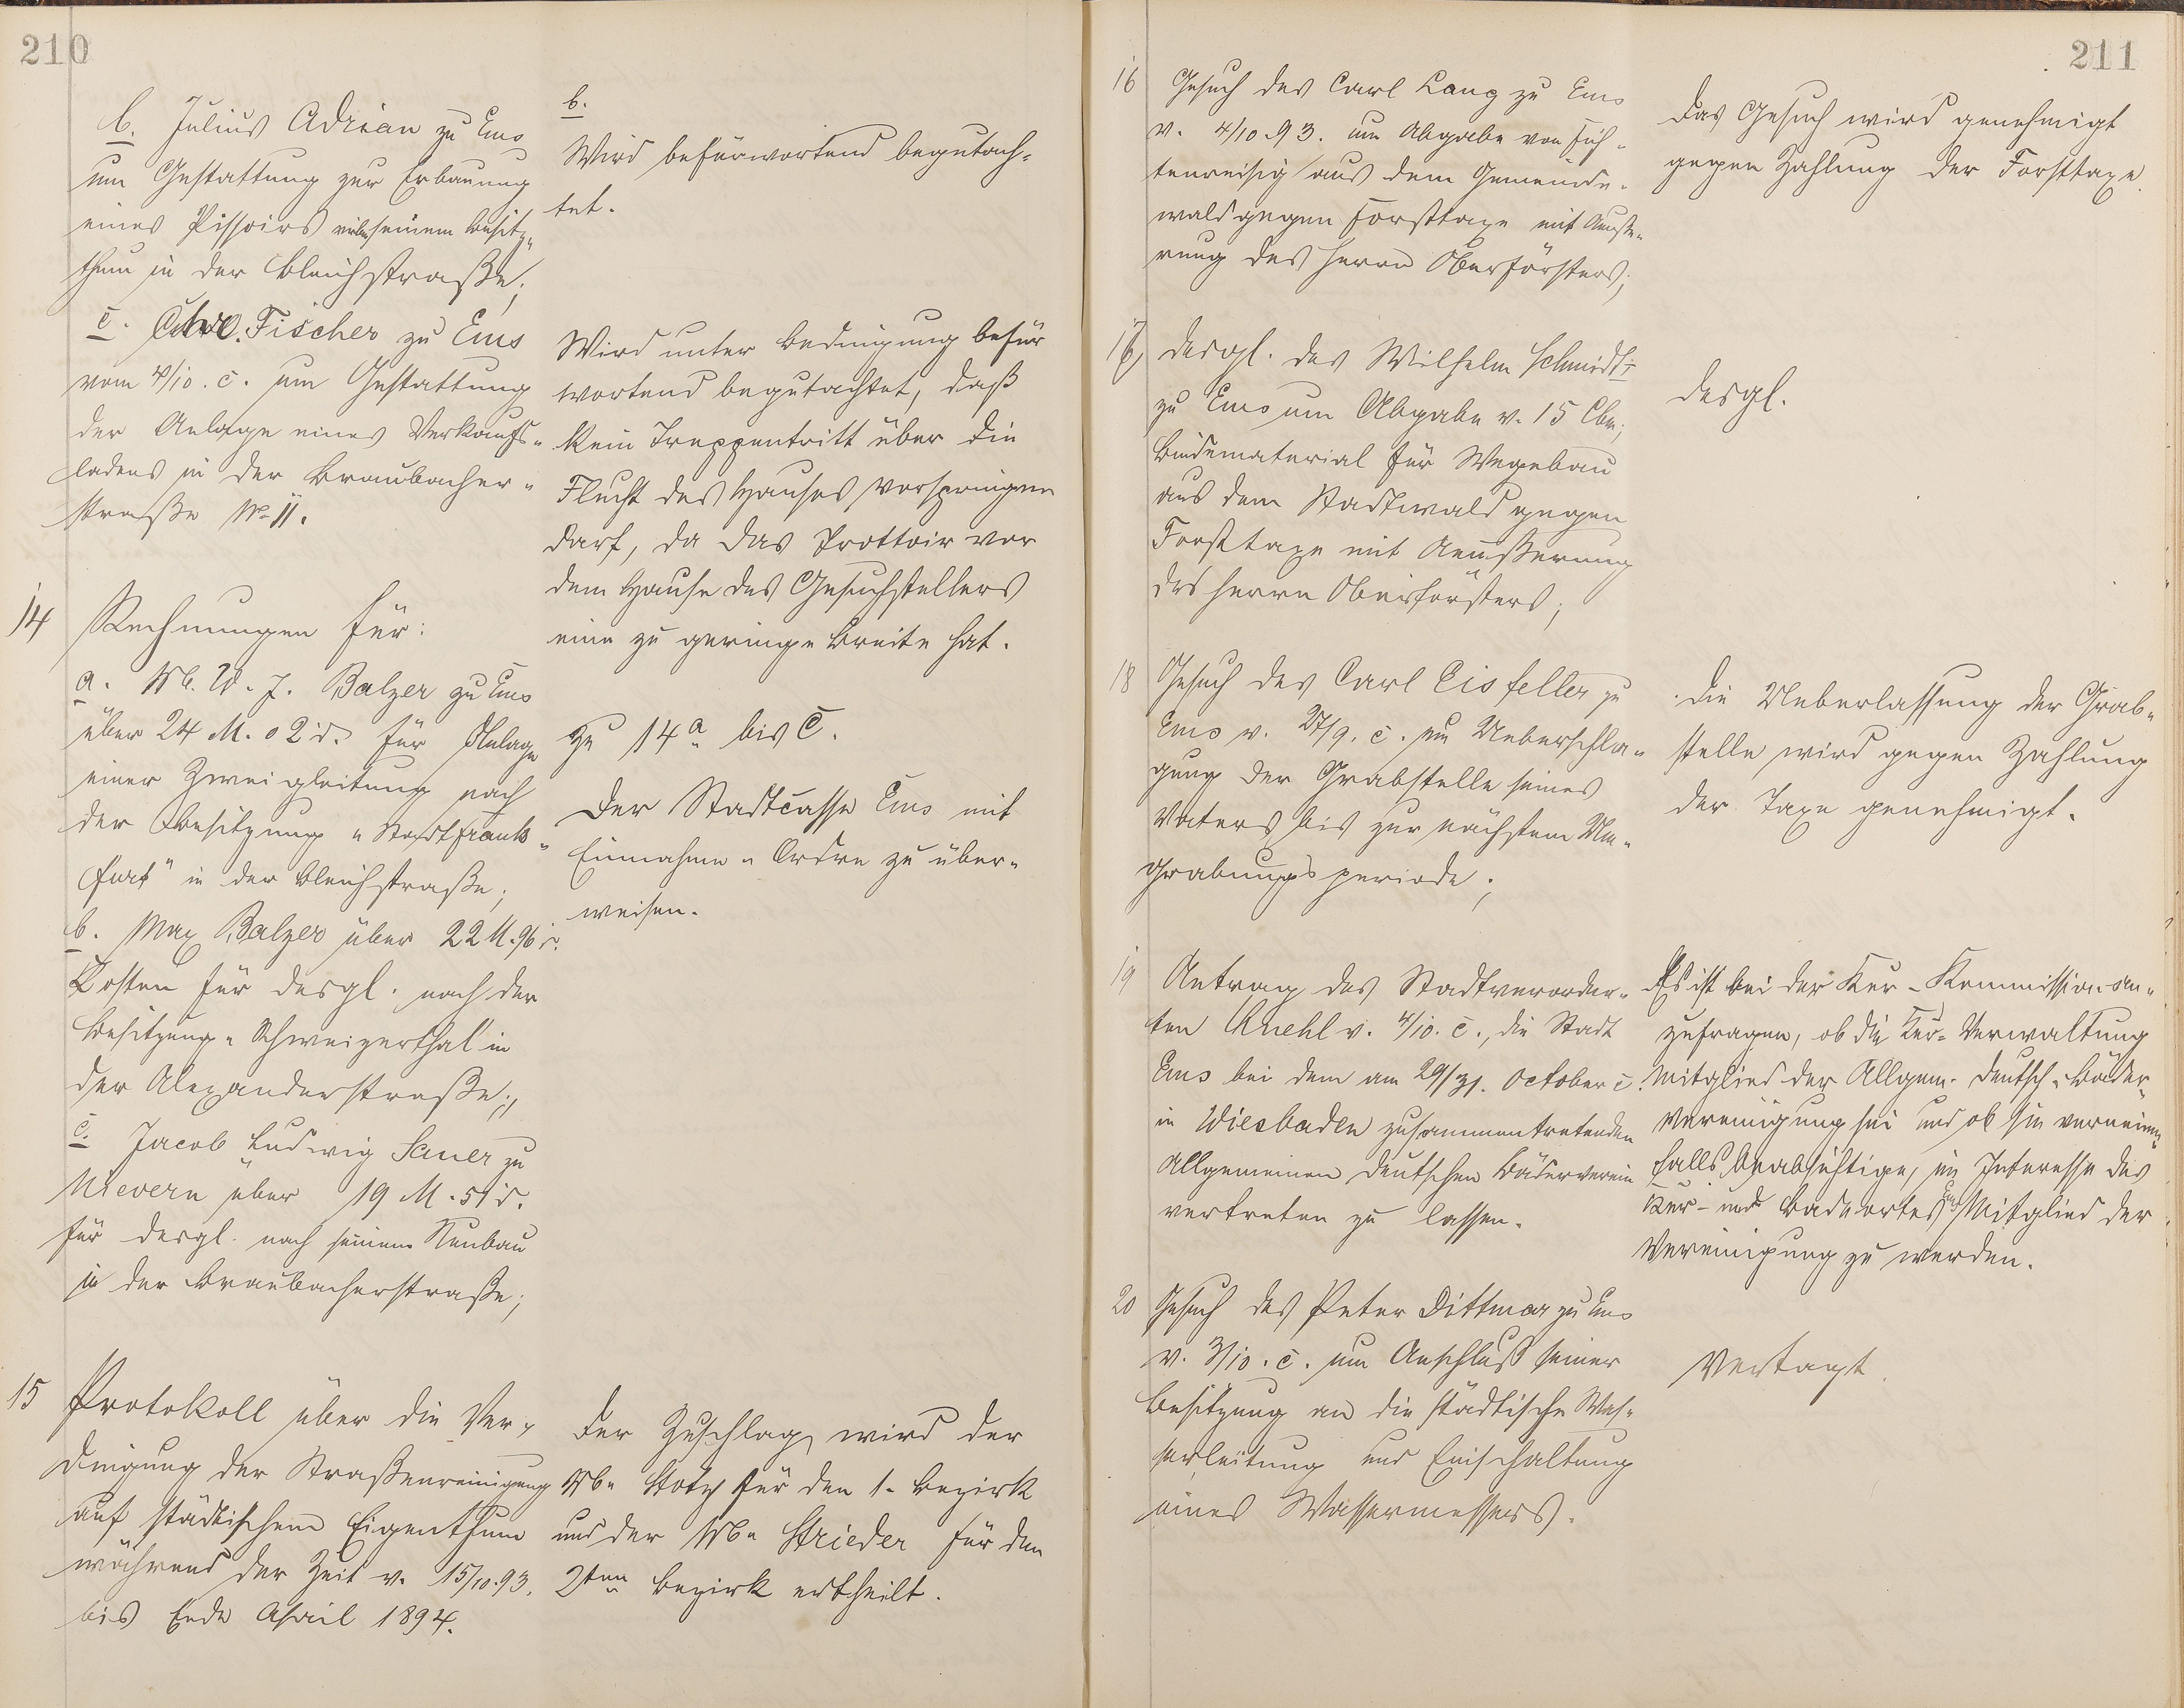 210
b. Julius Adrian zu Ems
um Gestattung zur Erbauung
eines Pissoirs seinem Besitz-
thum in der Bleichstraße;
c. Fischer zu Ems
vom 4/10. c. um Gestattung
der Anlage eines Verkaufs-
ladens in der Braubacher-
straße No 11.
14 Rechnungen für:
a. Wb. W. J. Balzer zu Ems
über 24 M. 02 d. für Anlage
einer Zweigleitung nach
der Besitzung "Stadt Frank-
furt" in der Bleichstraße;
b. Max Balzer über 22 M. 96 d.
Kosten für desgl. nach der
Besitzung Schweizerthal in
der Alexanderstraße;
c. Jacob Ludwig Sauer zu
Nievern über 19 M. 51 d.
für desgl. nach seinem Neubau
in der Braubacherstraße;
15 Protokoll über die Ver-
dingung der Straßenreinigung
auf städtischem Eigenthum
während der Zeit v. 15/10.93.
bis Ende April 1894.
b.
Wird befürwortend begutach-
tet.
Wird unter Bedingung befür
wortend begutachtet, daß
kein Treppentritt über die
Flucht des Hauses vorspringen
darf, da das Trottoir vor
dem Hause des Gesuchstellers
eine zu geringe Breite hat.
zu 14 a bis c.
Der Stadtcasse Ems mit
Einnahme-Ordre zu über-
weisen.
Der Zuschlag wird der
Wb. Stotz für den 1. Bezirk
und der Wb. Strieder für den
2ten Bezirk ertheilt.
211
16 Gesuch des Carl Lang zu Ems
v. 4/10.93. um Abgabe von Fich-
tenreisig aus dem Gemeinde-
wald gegen Forsttaxe mit Aeuße-
rung des Herrn Oberförsters;
17 desgl. des Wilhelm Schmidt I
zu Ems um Abgabe v. 15 Cbm.
Bindematerial für Wegebau
aus dem Stadtwald gegen
Forsttaxe mit Aeußerung
des Herrn Oberförsters;
18 Gesuch des Carl Eisfeller zu
Ems v. 27/9. c. um Ueberschla-
gung der Grabstelle seines
Vaters bis zur nächsten Um-
grabungsperiode;
19 Antrag des Stadtverordne-
ten v. 4/10. c., die Stadt
Ems bei dem am 29/31. October c.
in Wiesbaden zusammentretenden
Allgemeinen deutschen Bäderverein
vertreten zu lassen.
20 Gesuch des Peter Dittmar zu Ems
v. 3/10. c. um Anschluß seiner
Besitzung an die städtische Was-
serleitung und Einschaltung
eines Wassermessers.
Das Gesuch wird genehmigt
gegen Zahlung der Forsttaxe.
desgl.
Die Ueberlassung der Grab-
stelle wird gegen Zahlung
der Taxe genehmigt.
Es ist bei der Kur-Kommission an-
zufragen, ob die Kur-Verwaltung
Mitglied der Allgem. deutsch. Bäder-
Vereinigung sei und ob sie verneinen-
falls beabsichtige, im Interesse des
Kur- und Badeortes Ems Mitglied der
Vereinigung zu werden.
Vertagt.